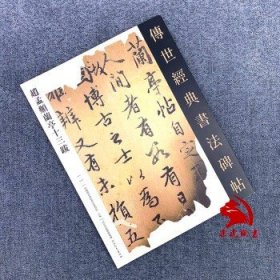 傳世經典書法碑帖
蘭亭帖自定
人間者有數有日
博古之士以為
辨又有未損五
趙孟頫蘭亭十三跋